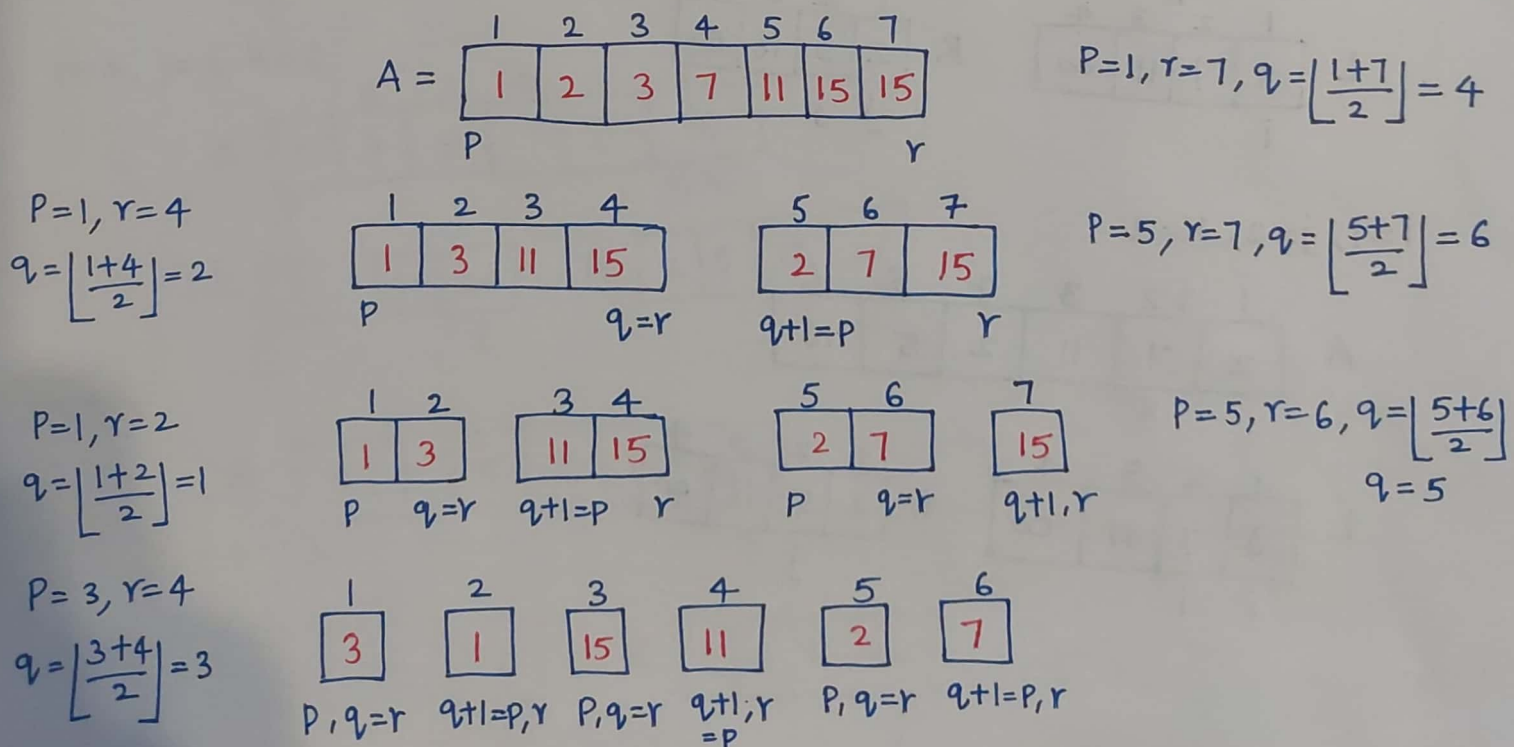 1 2 3 4 5 6 7
A = 1 2 3 7 11 15 15
P r
P=1, r=7, q=⌊(1+7)/2⌋ = 4
P=1, r=4
q=⌊(1+4)/2⌋=2
1 2 3 4
1 3 11 15
P q=r
5 6 7
2 7 15
q+1=P r
P=5, r=7, q=⌊(5+7)/2⌋=6
P=1, r=2
q=⌊(1+2)/2⌋=1
1 2
1 3
P q=r
3 4
11 15
q+1=P r
5 6
2 7
P q=r
7
15
q+1, r
P=5, r=6, q=⌊(5+6)/2⌋
q=5
P=3, r=4
q=⌊(3+4)/2⌋=3
1 2 3 4 5 6
3 1 15 11 2 7
P, q=r q+1=P, r P, q=r q+1, r P, q=r q+1=P, r
=P